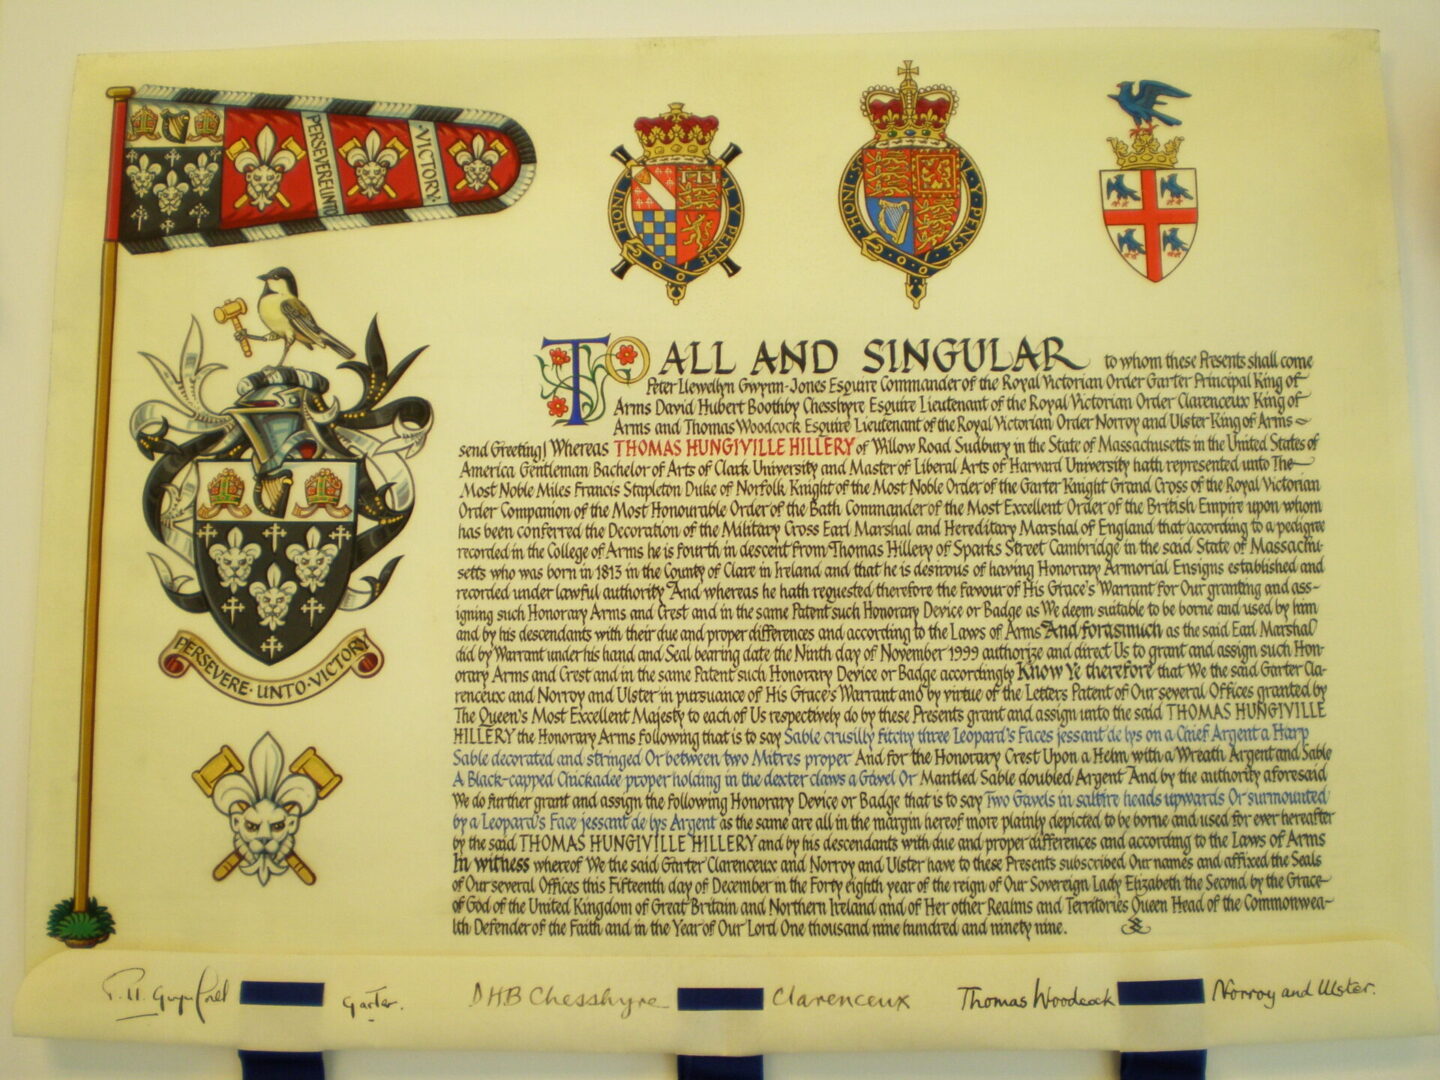 PERSEVERE·UNTO
·VICTORY·
HONI
Y PENSE
HONI·
·Y·PENSE
TO ALL AND SINGULAR to whom these Presents shall come
Peter Llewellyn Gwynn-Jones Esquire Commander of the Royal Victorian Order Garter Principal King of
Arms David Hubert Boothby Chesshyre Esquire Lieutenant of the Royal Victorian Order Clarenceux King of
Arms and Thomas Woodcock Esquire Lieutenant of the Royal Victorian Order Norroy and Ulster King of Arms
send Greeting! Whereas THOMAS HUNGIVILLE HILLERY of Willow Road Sudbury in the State of Massachusetts in the United States of
America Gentleman Bachelor of Arts of Clark University and Master of Liberal Arts of Harvard University hath represented unto The
Most Noble Miles Francis Stapleton Duke of Norfolk Knight of the Most Noble Order of the Garter Knight Grand Cross of the Royal Victorian
Order Companion of the Most Honourable Order of the Bath Commander of the Most Excellent Order of the British Empire upon whom
has been conferred the Decoration of the Military Cross Earl Marshal and Hereditary Marshal of England that according to a pedigree
recorded in the College of Arms he is fourth in descent from Thomas Hillery of Sparks Street Cambridge in the said State of Massachu-
setts who was born in 1813 in the County of Clare in Ireland and that he is desirous of having Honorary Armorial Ensigns established and
recorded under lawful authority And whereas he hath requested therefore the favour of His Grace's Warrant for Our granting and ass-
igning such Honorary Arms and Crest and in the same Patent such Honorary Device or Badge as We deem suitable to be borne and used by him
and by his descendants with their due and proper differences and according to the Laws of Arms And forasmuch as the said Earl Marshal
did by Warrant under his hand and Seal bearing date the Ninth day of November 1999 authorize and direct Us to grant and assign such Hon-
orary Arms and Crest and in the same Patent such Honorary Device or Badge accordingly Know Ye therefore that We the said Garter Cla-
renceux and Norroy and Ulster in pursuance of His Grace's Warrant and by virtue of the Letters Patent of Our several Offices granted by
The Queen's Most Excellent Majesty to each of Us respectively do by these Presents grant and assign unto the said THOMAS HUNGIVILLE
HILLERY the Honorary Arms following that is to say Sable crusilly fitchy three Leopard's Faces jessant de lys on a Chief Argent a Harp
Sable decorated and stringed Or between two Mitres proper And for the Honorary Crest Upon a Helm with a Wreath Argent and Sable
A Black-capped Chickadee proper holding in the dexter claws a Gavel Or Mantled Sable doubled Argent And by the authority aforesaid
We do further grant and assign the following Honorary Device or Badge that is to say Two Gavels in saltire heads upwards Or surmounted
by a Leopard's Face jessant de lys Argent as the same are all in the margin hereof more plainly depicted to be borne and used for ever hereafter
by the said THOMAS HUNGIVILLE HILLERY and by his descendants with due and proper differences and according to the Laws of Arms
In witness whereof We the said Garter Clarenceux and Norroy and Ulster have to these Presents subscribed Our names and affixed the Seals
of Our several Offices this Fifteenth day of December in the Forty eighth year of the reign of Our Sovereign Lady Elizabeth the Second by the Grace
of God of the United Kingdom of Great Britain and Northern Ireland and of Her other Realms and Territories Queen Head of the Commonwea-
lth Defender of the Faith and in the Year of Our Lord One thousand nine hundred and ninety nine.
PERSEVERE·UNTO·VICTORY
Garter.
DHB Chesshyre
Clarenceux
Thomas Woodcock
Norroy and Ulster.